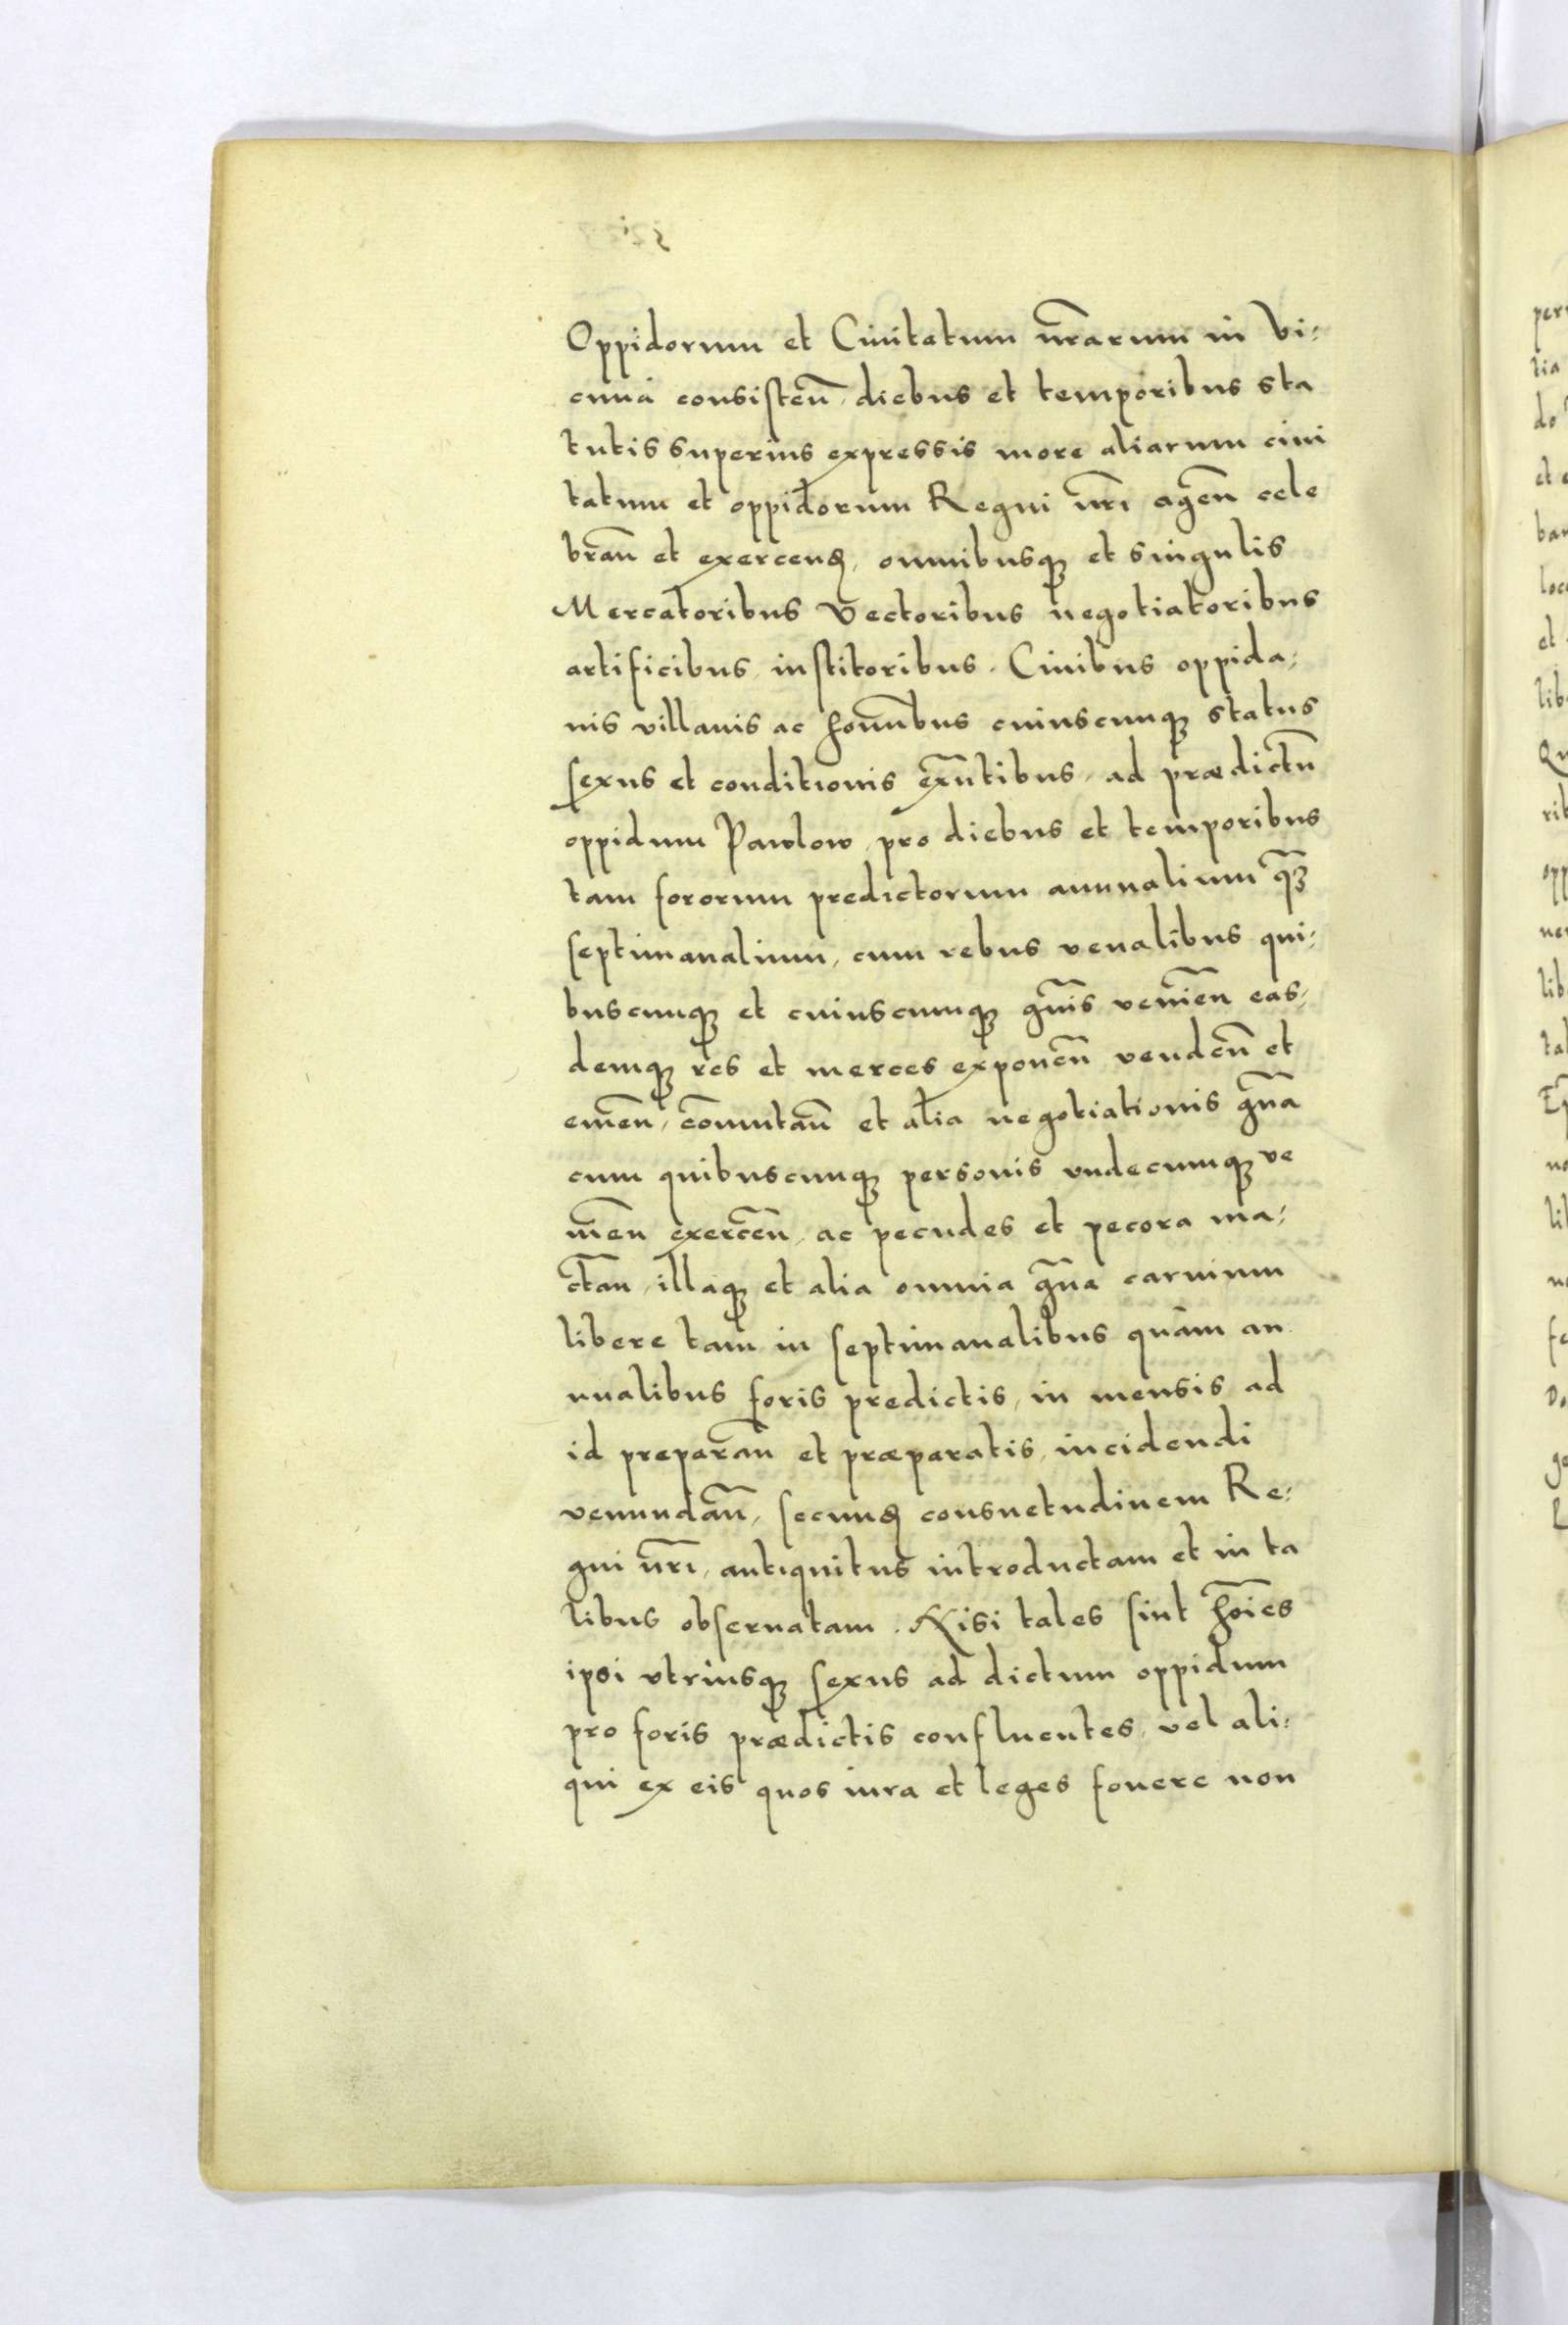 Oppidorum et Ciuitatum nr̄arum in Vi-
cinia consisten̄, diebus et temporibus sta
tutis superius expressis more aliarum ciui
tatum et oppidorum Regni nr̄i agen̄ cele
bran̄ et exercenꝺ, omnibusqꝫ et singulis
Mercatoribus Vectoribus negotiatoribus
artificibus, institoribus, Ciuibus oppida-
nis villanis ac hom̄ibus cuiuscunqꝫ status
sexus et conditionis exn̄tibus, ad prædictū
oppidum Pawlow, pro diebus et temporibus
tam fororum predictorum annualium qᷓꝫ
septimanalium, cum rebus venalibus qui-
buscunqꝫ et cuiuscumqꝫ gn̄is venien̄ eas-
demqꝫ res et merces exponen̄ venden̄ et
emen̄, com̄utan̄ et alia negotiationis gn̄a
cum quibuscunqꝫ personis vndecumqꝫ ve
nien̄ exercen̄, ac pecudes et pecora ma-
ctan̄, illaqꝫ et alia omnia gn̄a carnium
libere tam in septimanalibus quàm an
nualibus foris predictis, in mensis ad
id preparan̄ et præparatis, incidendi
venundan̄, secunꝺ consuetudinem Re-
gni nr̄i, antiquitus introductam et in ta
libus obseruatam. Nisi tales sint hōies
ipsi vtriusqꝫ sexus ad dictum oppidum
pro foris prædictis confluentes, vel ali-
qui ex eis quos iura et leges fouere non